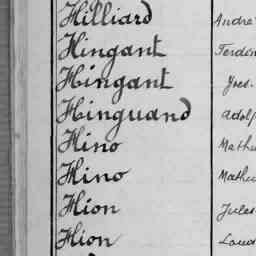 Hilliard André
Hingant Ferdin
Hingant Yves.
Hinguand Adolp
Hino Mathu
Hino Mathu
Hion Jules
Hion Loui